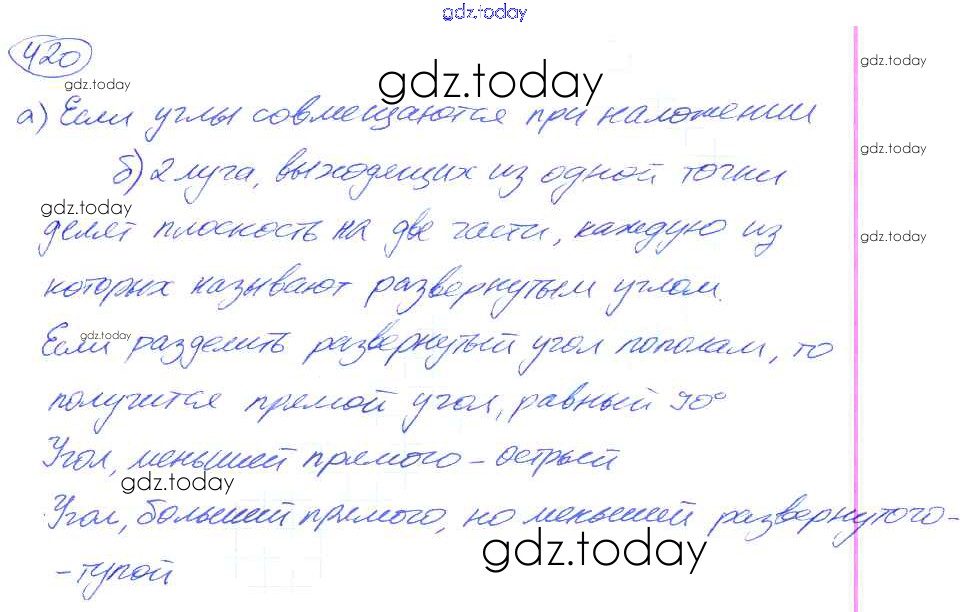 gdz.today
420
gdz.today
gdz.today
gdz.today
а) Если углы совмещаются при наложении
gdz.today
б) 2 луча, выходящих из одной точки
gdz.today
делят плоскость на две части, каждую из
gdz.today
которых называют развернутым углом.
gdz.today
Если разделить развернутый угол пополам, то
получится прямой угол, равный 90°
Угол, меньший прямого – острый
gdz.today
Угол, больший прямого, но меньший развернутого –
gdz.today
– тупой